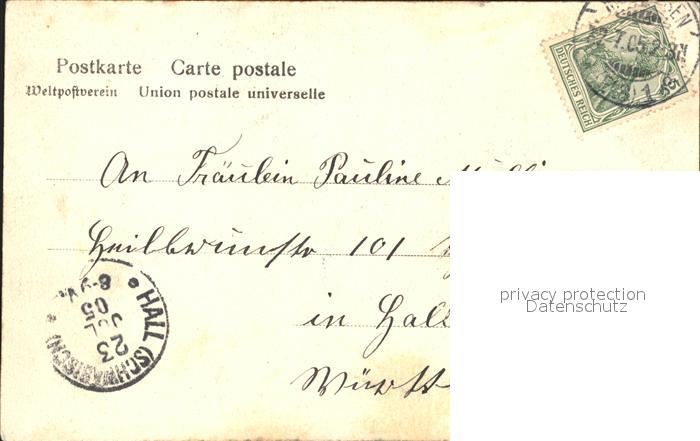 Postkarte Carte postale
Weltpostverein Union postale universelle
DEUTSCHES REICH
An Fräulein Pauline
Heilbronnerstr 101
in Hall
Württ
HALL (SCHWÄBISCH)
23
JUL
05
8-9 N.
privacy protection
Datenschutz